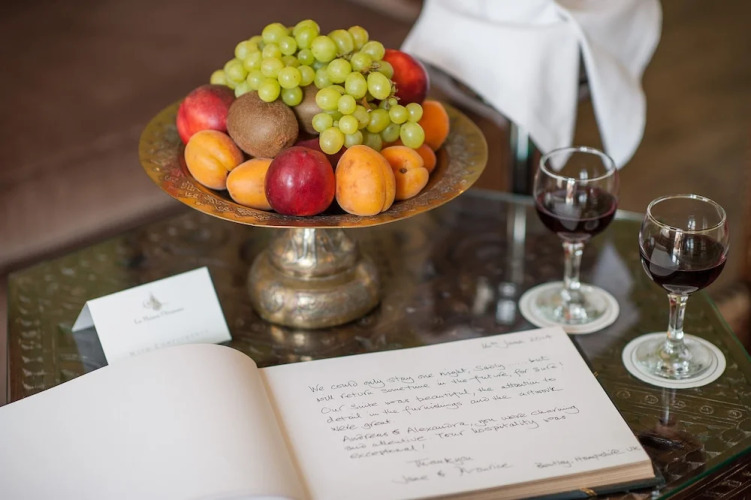 We could only stay one night, Sadly but
will return sometime in the future, for sure!
Our suite was beautiful, the attention to
detail in the furnishings and the artwork
were great
Andreas & Alexandra, you were charming
and attentive Your hospitality was
exceptional!
Thank you
Jane & Maurice